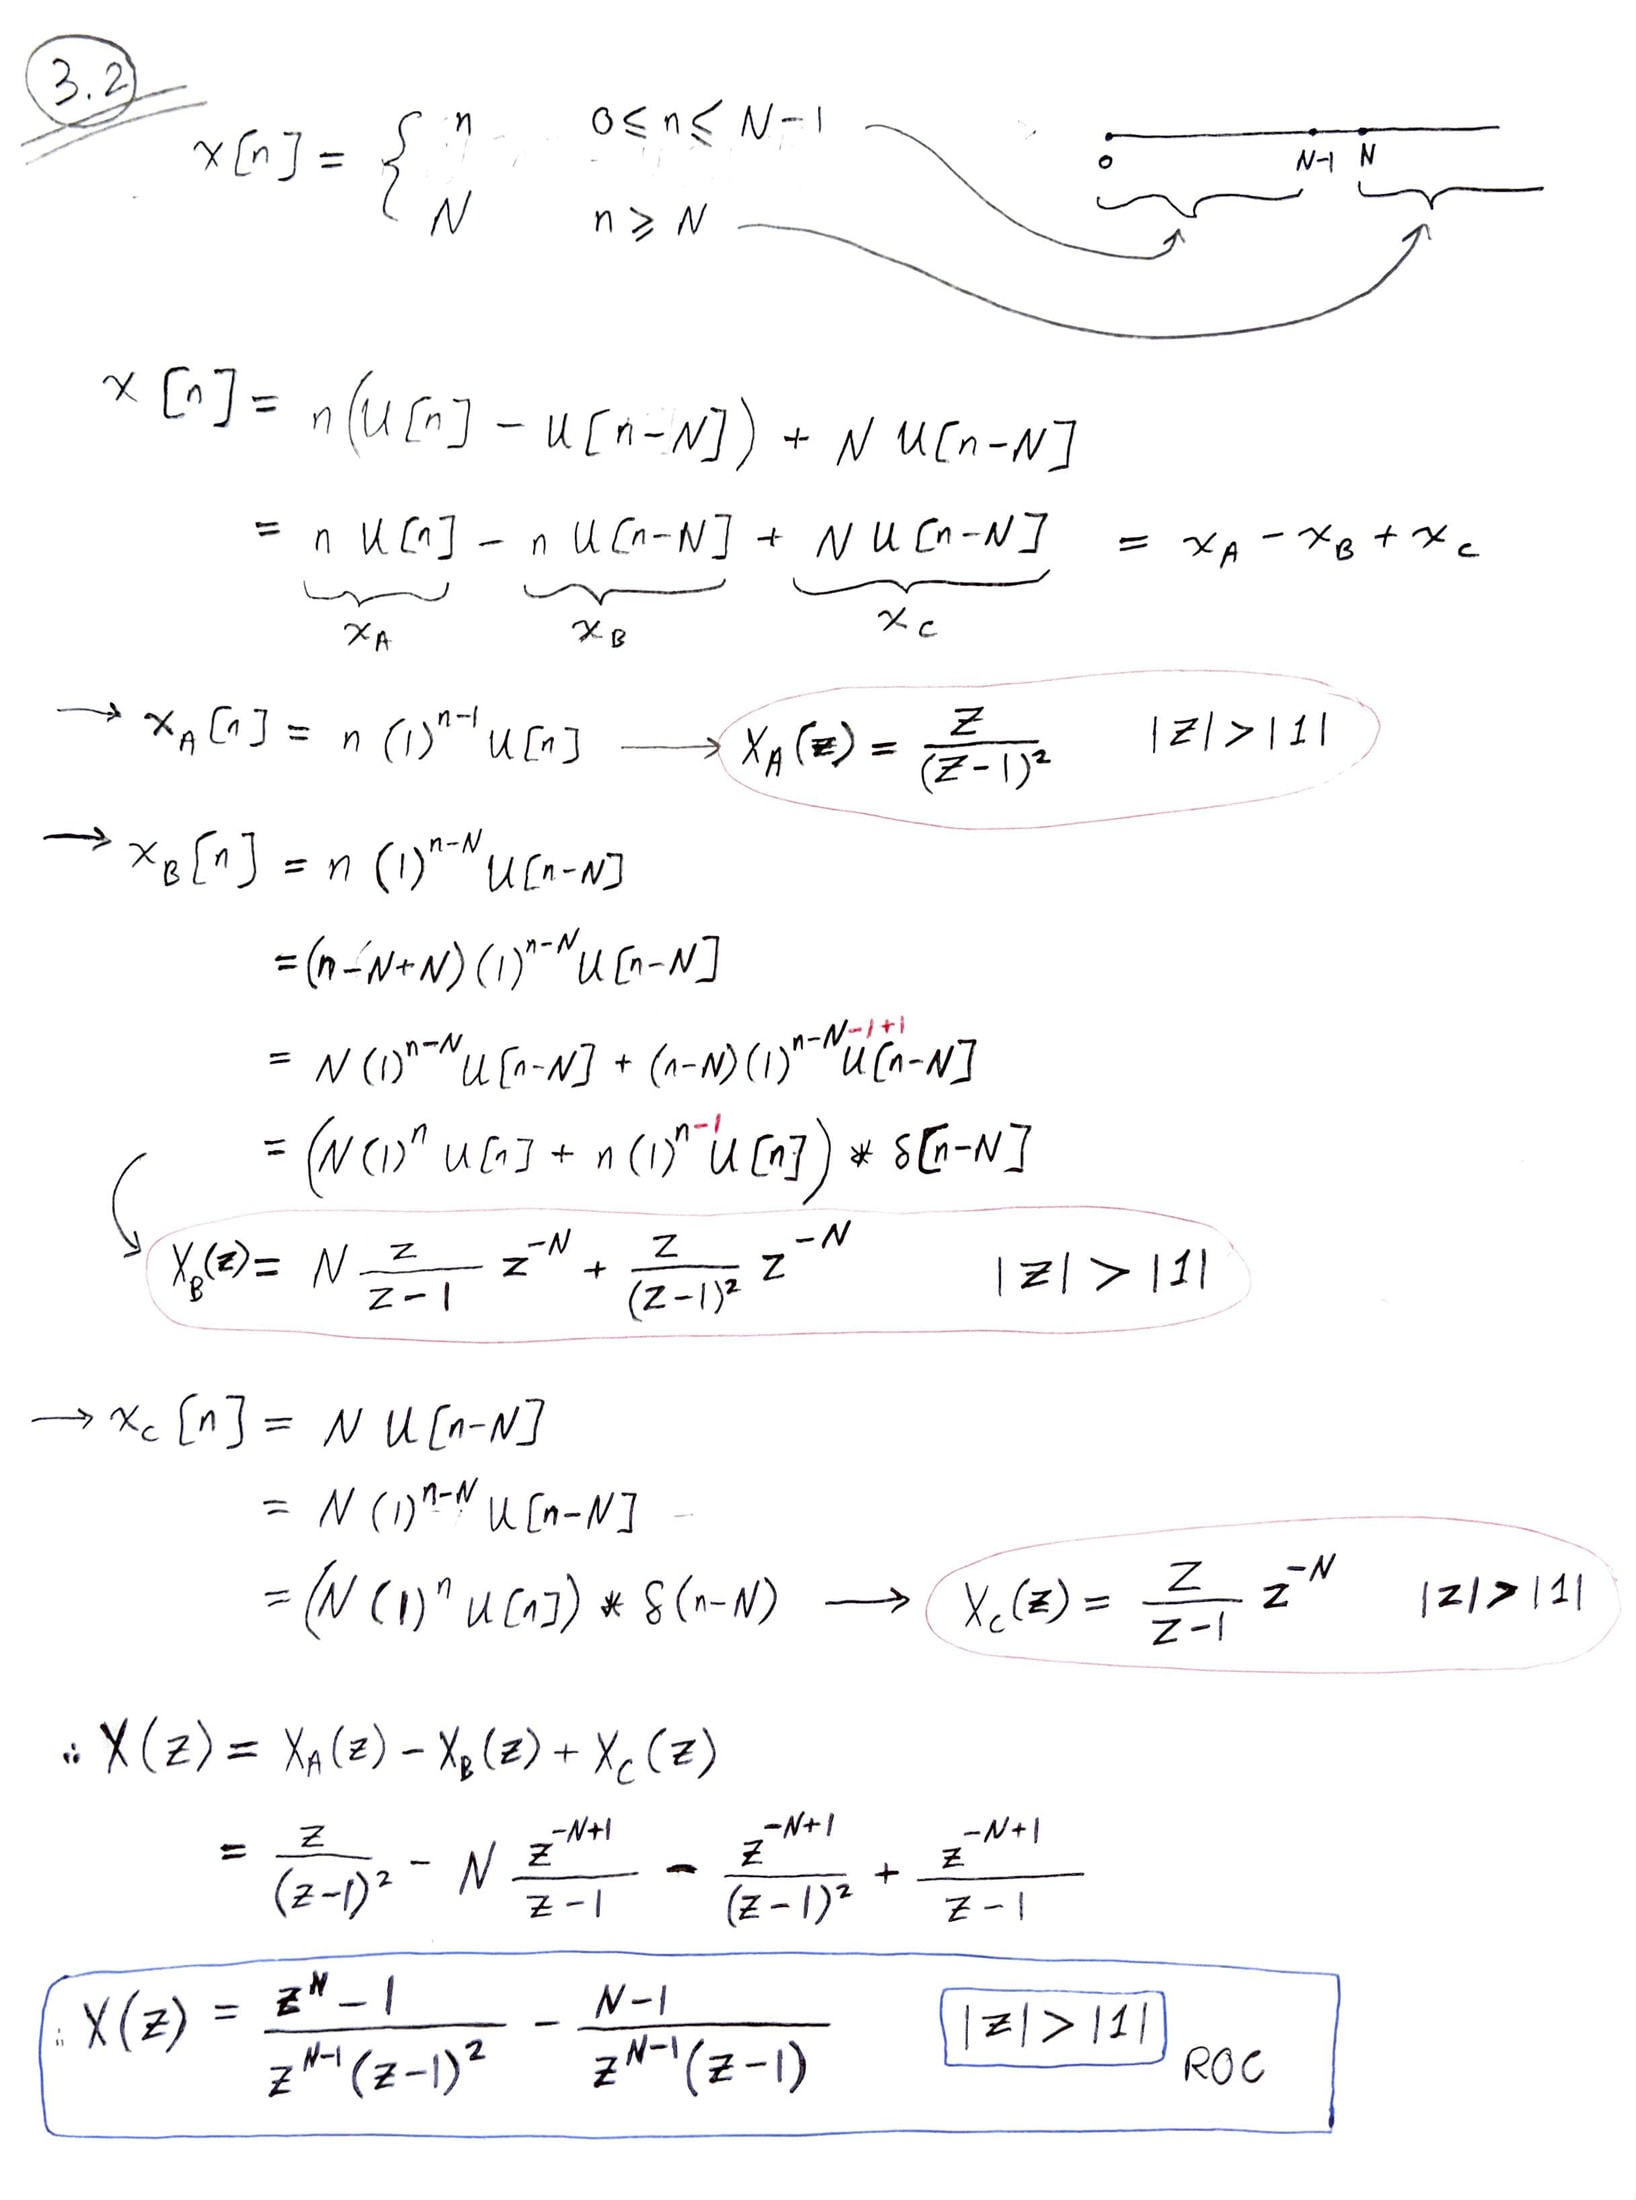 3.2
x[n] = { n   0 ≤ n ≤ N-1
N   n ≥ N
0   N-1   N
x[n] = n(u[n] - u[n-N]) + N u[n-N]
= n u[n] - n u[n-N] + N u[n-N] = x_A - x_B + x_C
x_A   x_B   x_C
→ x_A[n] = n (1)^{n-1} u[n] → X_A(z) = z/(z-1)^2   |z| > |1|
→ x_B[n] = n (1)^{n-N} u[n-N]
= (n-N+N) (1)^{n-N} u[n-N]
= N (1)^{n-N} u[n-N] + (n-N) (1)^{n-N-1+1} u[n-N]
= (N (1)^n u[n] + n (1)^{n-1} u[n]) * δ[n-N]
X_B(z) = N z/(z-1) z^{-N} + z/(z-1)^2 z^{-N}   |z| > |1|
→ x_C[n] = N u[n-N]
= N (1)^{n-N} u[n-N]
= (N (1)^n u[n]) * δ(n-N) → X_C(z) = z/(z-1) z^{-N}   |z| > |1|
∴ X(z) = X_A(z) - X_B(z) + X_C(z)
= z/(z-1)^2 - N z^{-N+1}/(z-1) - z^{-N+1}/(z-1)^2 + z^{-N+1}/(z-1)
∴ X(z) = (z^N - 1)/(z^{N-1}(z-1)^2) - (N-1)/(z^{N-1}(z-1))   |z| > |1| ROC